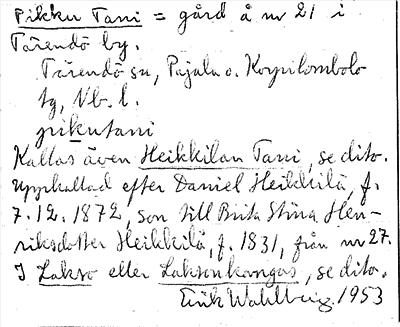 Pikku Tani = gård å nr 21 i
Tärendö by.
Tärendö sn, Pajala o. Korpilombolo
tg, Nb. l.
pikutani
Kallas även Heikkilan Tani, se dito.
Uppkallad efter Daniel Heikkilä, f.
7.12.1872, son till Brita Stina Hen-
riksdotter Heikkilä, f. 1831, från nr 27.
I Lakso eller Laksonkangas, se dito.
Erik Wahlberg. 1953